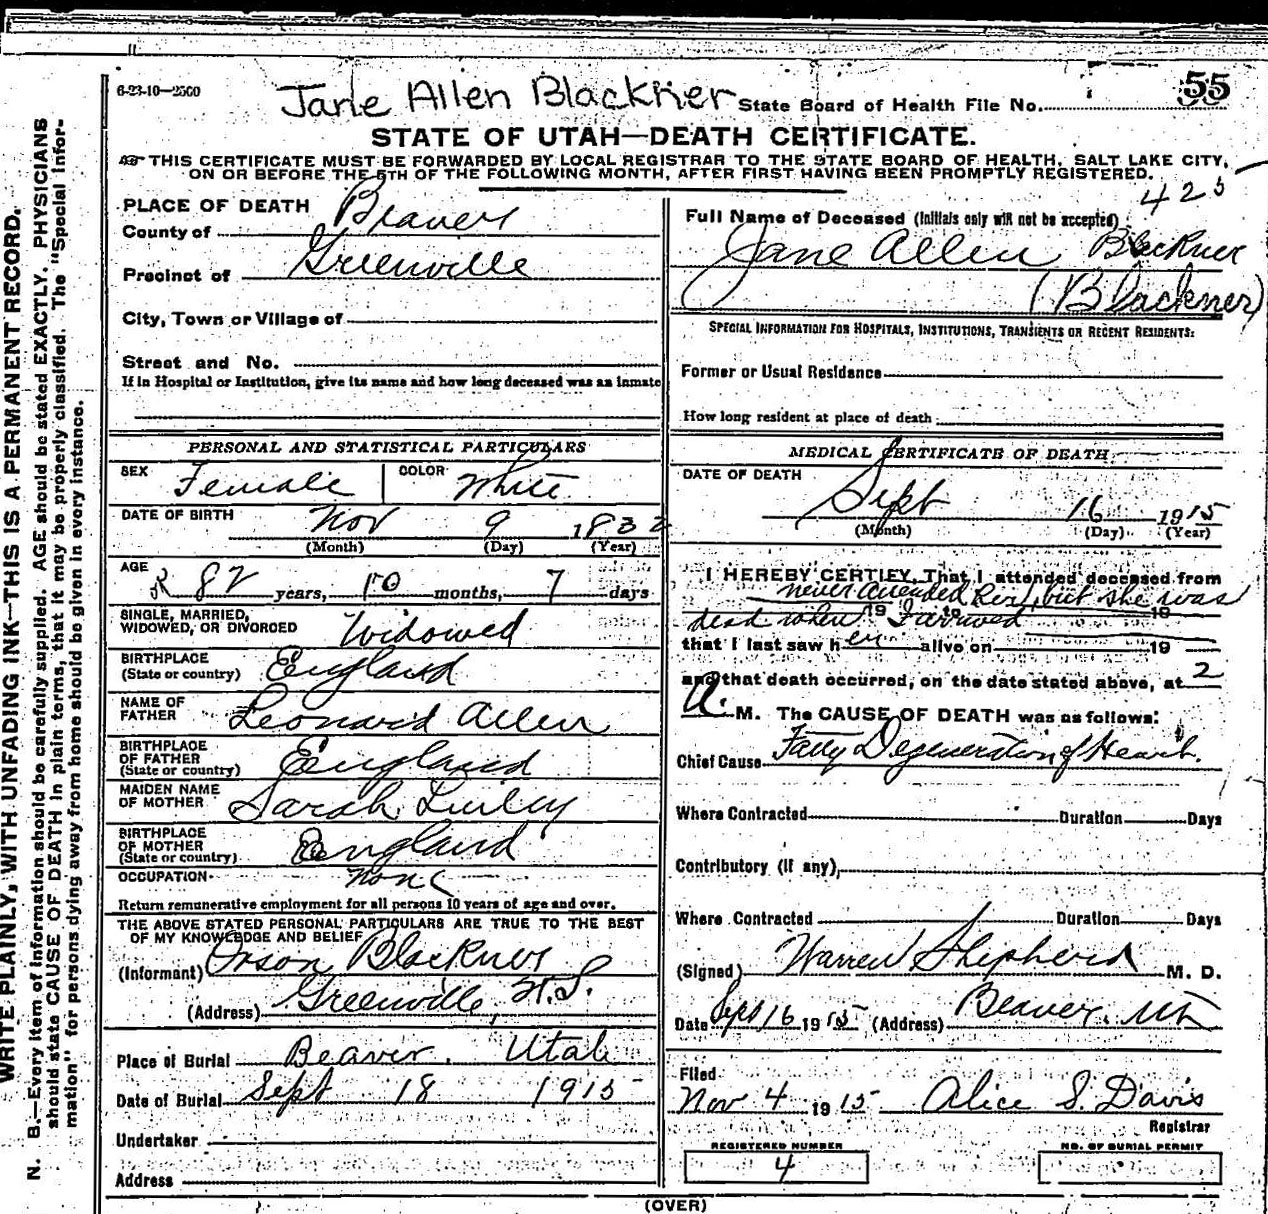 WRITE PLAINLY, WITH UNFADING INK—THIS IS A PERMANENT RECORD.
N. B.—Every item of information should be carefully supplied. AGE should be stated EXACTLY. PHYSICIANS
should state CAUSE OF DEATH in plain terms, that it may be properly classified. The "Special Infor-
mation" for persons dying away from home should be given in every instance.
6-23-10—2500
Jane Allen Blackner
State Board of Health File No. 55
STATE OF UTAH—DEATH CERTIFICATE.
THIS CERTIFICATE MUST BE FORWARDED BY LOCAL REGISTRAR TO THE STATE BOARD OF HEALTH, SALT LAKE CITY,
ON OR BEFORE THE 5TH OF THE FOLLOWING MONTH, AFTER FIRST HAVING BEEN PROMPTLY REGISTERED.
PLACE OF DEATH
County of Beaver
Precinct of Greenville
City, Town or Village of
Street and No.
If in Hospital or Institution, give its name and how long deceased was an inmate
PERSONAL AND STATISTICAL PARTICULARS
SEX Female COLOR White
DATE OF BIRTH Nov 9 1832
(Month) (Day) (Year)
AGE 82 years, 10 months, 7 days
SINGLE, MARRIED,
WIDOWED, OR DIVORCED Widowed
BIRTHPLACE
(State or country) England
NAME OF
FATHER Leonard Allen
BIRTHPLACE
OF FATHER
(State or country) England
MAIDEN NAME
OF MOTHER Sarah
BIRTHPLACE
OF MOTHER
(State or country) England
OCCUPATION None
Return remunerative employment for all persons 10 years of age and over.
THE ABOVE STATED PERSONAL PARTICULARS ARE TRUE TO THE BEST
OF MY KNOWLEDGE AND BELIEF
(Informant) Orson Blackner
(Address) Greenville,
Place of Burial Beaver. Utah
Date of Burial Sept 18 1915
Undertaker
Address
425
Full Name of Deceased (Initials only will not be accepted)
Jane Allen Blackner
(Blackner)
SPECIAL INFORMATION FOR HOSPITALS, INSTITUTIONS, TRANSIENTS OR RECENT RESIDENTS:
Former or Usual Residence
How long resident at place of death
MEDICAL CERTIFICATE OF DEATH
DATE OF DEATH
Sept 16 1915
(Month) (Day) (Year)
I HEREBY CERTIFY, That I attended deceased from
never attended her, but she was
19 to 19
dead when I arrived
that I last saw her alive on 19
and that death occurred, on the date stated above, at 2
A. M. The CAUSE OF DEATH was as follows:
Chief Cause Fatty Degeneration of Heart.
Where Contracted Duration Days
Contributory (if any),
Where Contracted Duration Days
(Signed) Warren Shepherd M. D.
Date Sept 16 1915 (Address) Beaver. Ut
Filed
Nov 4 1915 Alice S. Davis
Registrar
REGISTERED NUMBER
4
NO. OF BURIAL PERMIT
(OVER)